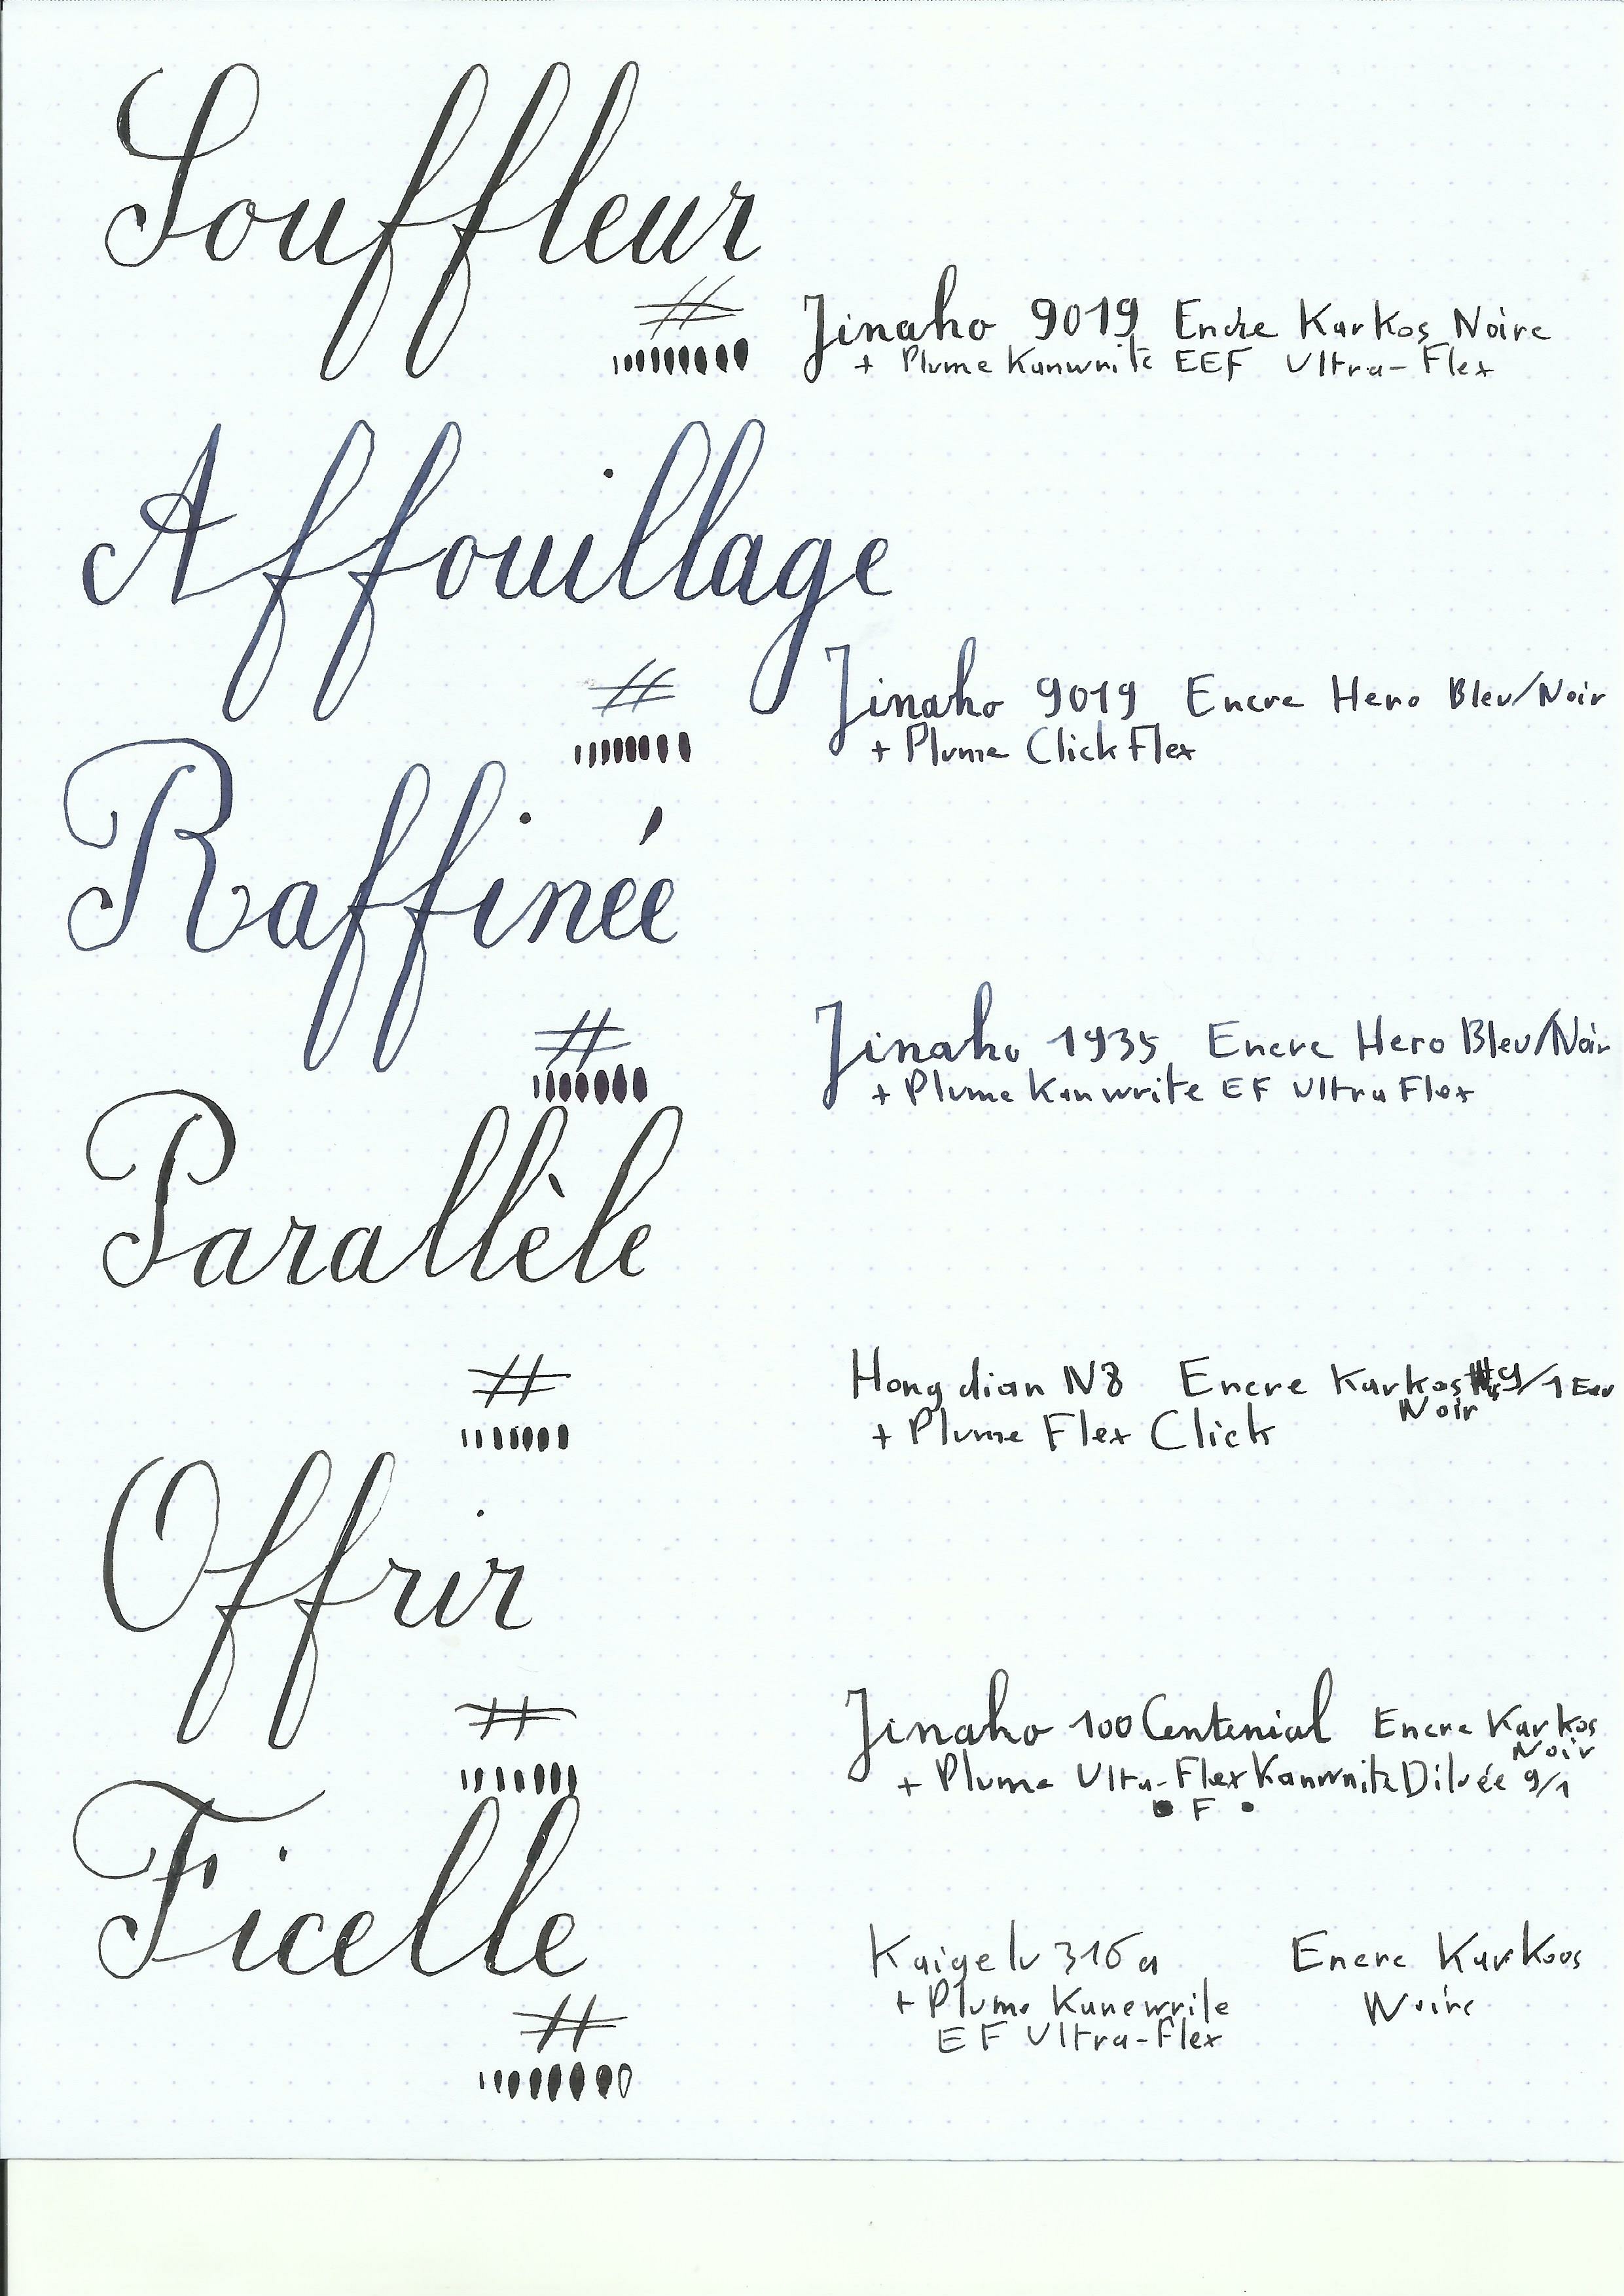 Souffleur
Jinaho 9019 Encre Karkos Noire
+ Plume Kanwrite EEF Ultra-Flex
Affouillage
Jinaho 9019 Encre Hero Bleu/Noir
+ Plume Click Flex
Raffinée
Jinaho 1935 Encre Hero Bleu/Noir
+ Plume Kanwrite EF Ultra Flex
Parallèle
Hongdian N8 Encre Karkos 9/1 Eau
Noir
+ Plume Flex Click
Offrir
Jinaho 100 Centenial Encre Karkos
Noir
+ Plume Ultra-Flex Kanwrite Diluée 9/1
F
Ficelle
Kaigelu 316a Encre Karkoos
+ Plume Kanewrite Noire
EF Ultra-Flex